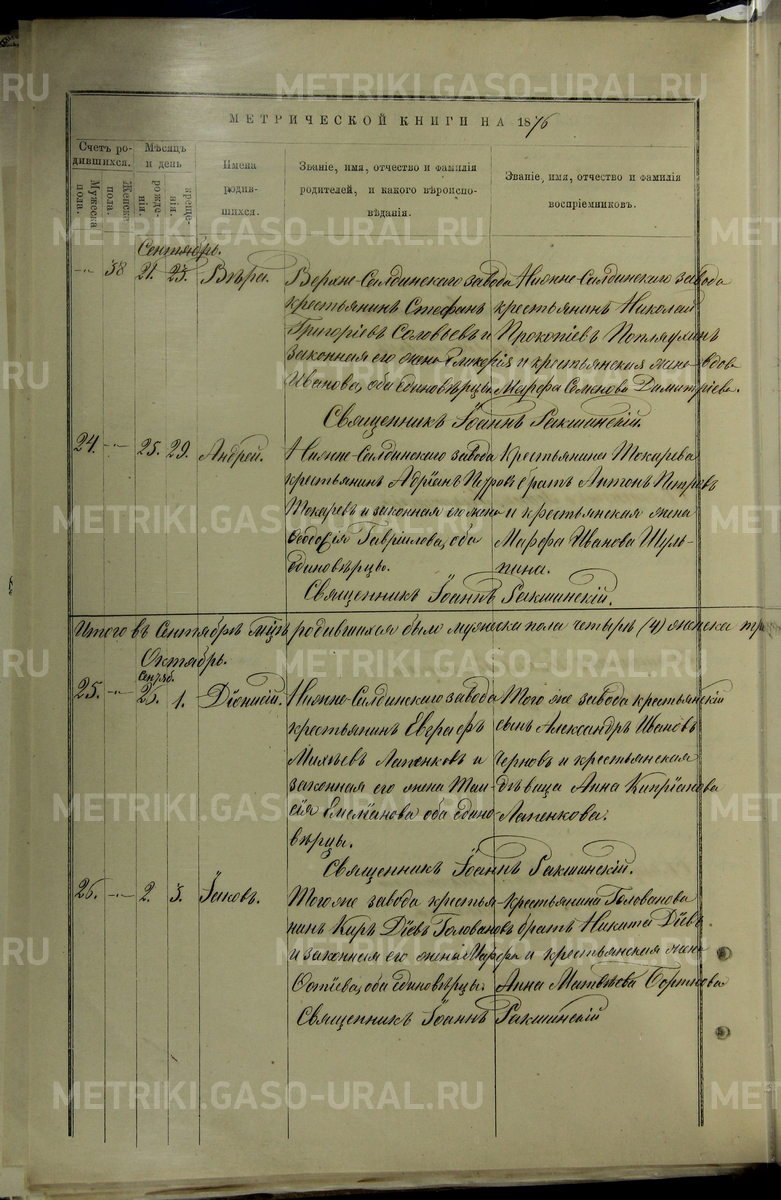 МЕТРИЧЕСКОЙ КНИГИ НА 1876
Счетъ родившихся.
Мужеска пола.
Женска пола.
Мѣсяцъ и день
рожденія.
крещенія.
Имена родившихся.
Званіе, имя, отчество и фамилія родителей, и какого вѣроисповѣданія.
Званіе, имя, отчество и фамилія воспріемниковъ.
Сентябрь.
38 21. 23. Вѣра.
Верхне-Салдинскаго завода
крестьянинъ Стефанъ
Григоріевъ Соловьевъ и
законная его жена Гликерія
Иванова, оба единовѣрцы.
Нижне-Салдинскаго завода
крестьянинъ Николай
Прокопіевъ Поплаухинъ
и крестьянская жена вдова
Марѳа Семенова Димитріева.
Священникъ Іоаннъ Ракшинскій.
24. 25. 29. Андрей.
Нижне-Салдинскаго завода
крестьянинъ Адріанъ Петровъ
Токаревъ и законная его жена
Ѳеодосія Гавріилова, оба
единовѣрцы.
Крестьянина Токарева
братъ Антонъ Петровъ
и крестьянская жена
Марѳа Иванова Шуль-
пина.
Священникъ Іоаннъ Ракшинскій.
Итого въ Сентябрѣ мцѣ родившихся было мужеска пола четыре (4) женска
Октябрь.
Сентяб.
25. 25. 1. Діонисій.
Нижне-Салдинскаго завода
крестьянинъ Евграфъ
Михѣевъ Лапенковъ и
законная его жена Таи-
сія Емеліанова оба едино
вѣрцы.
Того же завода крестьянскій
сынъ Александръ Ивановъ
Черновъ и крестьянская
дѣвица Анна Кипріанова
Лапенкова.
Священникъ Іоаннъ Ракшинскій.
26. 2. 3. Іаковъ.
Того же завода крестья-
нинъ Киръ Діевъ Головановъ
и законная его жена Марѳа
Фотіева, оба единовѣрцы.
Крестьянина Голованова
братъ Никита Діевъ
и крестьянская жена
Анна Матвѣева Бортнова
Священникъ Іоаннъ Ракшинскій
METRIKI.GASO-URAL.RU